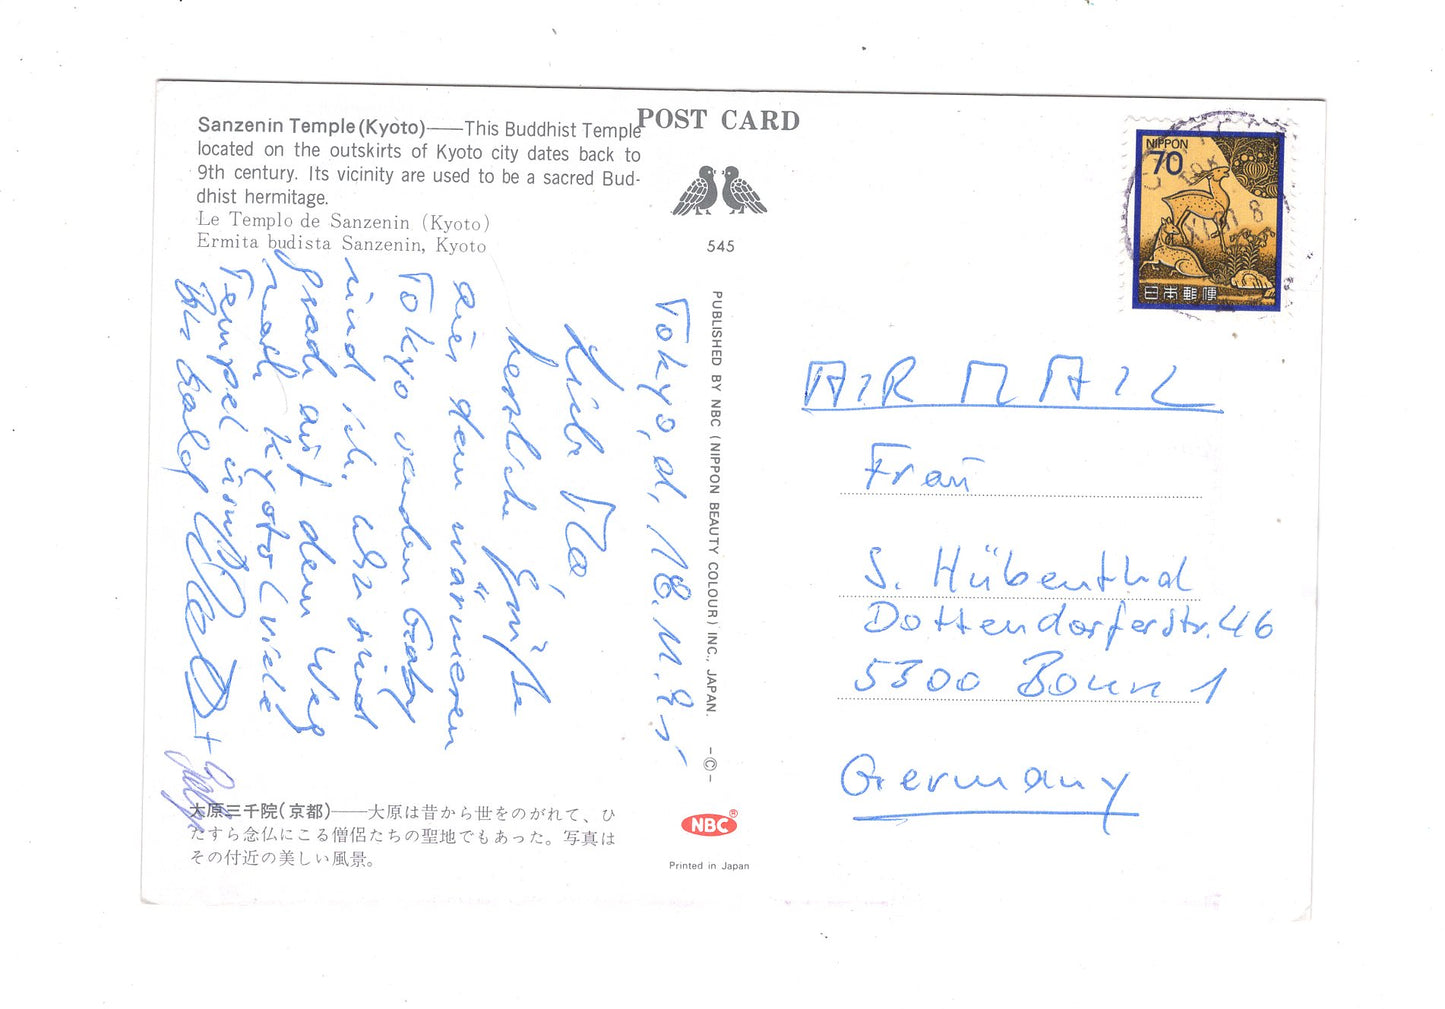 Sanzenin Temple (Kyoto)——This Buddhist Temple
located on the outskirts of Kyoto city dates back to
9th century. Its vicinity are used to be a sacred Bud-
dhist hermitage.
Le Templo de Sanzenin (Kyoto)
Ermita budista Sanzenin, Kyoto
POST CARD
545
PUBLISHED BY NBC (NIPPON BEAUTY COLOUR) INC., JAPAN. –©–
NBC®
Printed in Japan
NIPPON
70
日本郵便
Tokyo, d. 18.11.85
Liebe
herzliche Grüße
aus dem wärmeren
Tokyo senden Gaby
und ich. Wir sind
grad auf dem Weg
nach Kyoto (viele
Tempel
Bis bald
AIR MAIL
Frau
S. Hübenthal
Dottendorferstr. 46
5300 Bonn 1
Germany
大原三千院(京都)——大原は昔から世をのがれて、ひ
たすら念仏にこる僧侶たちの聖地でもあった。写真は
その付近の美しい風景。